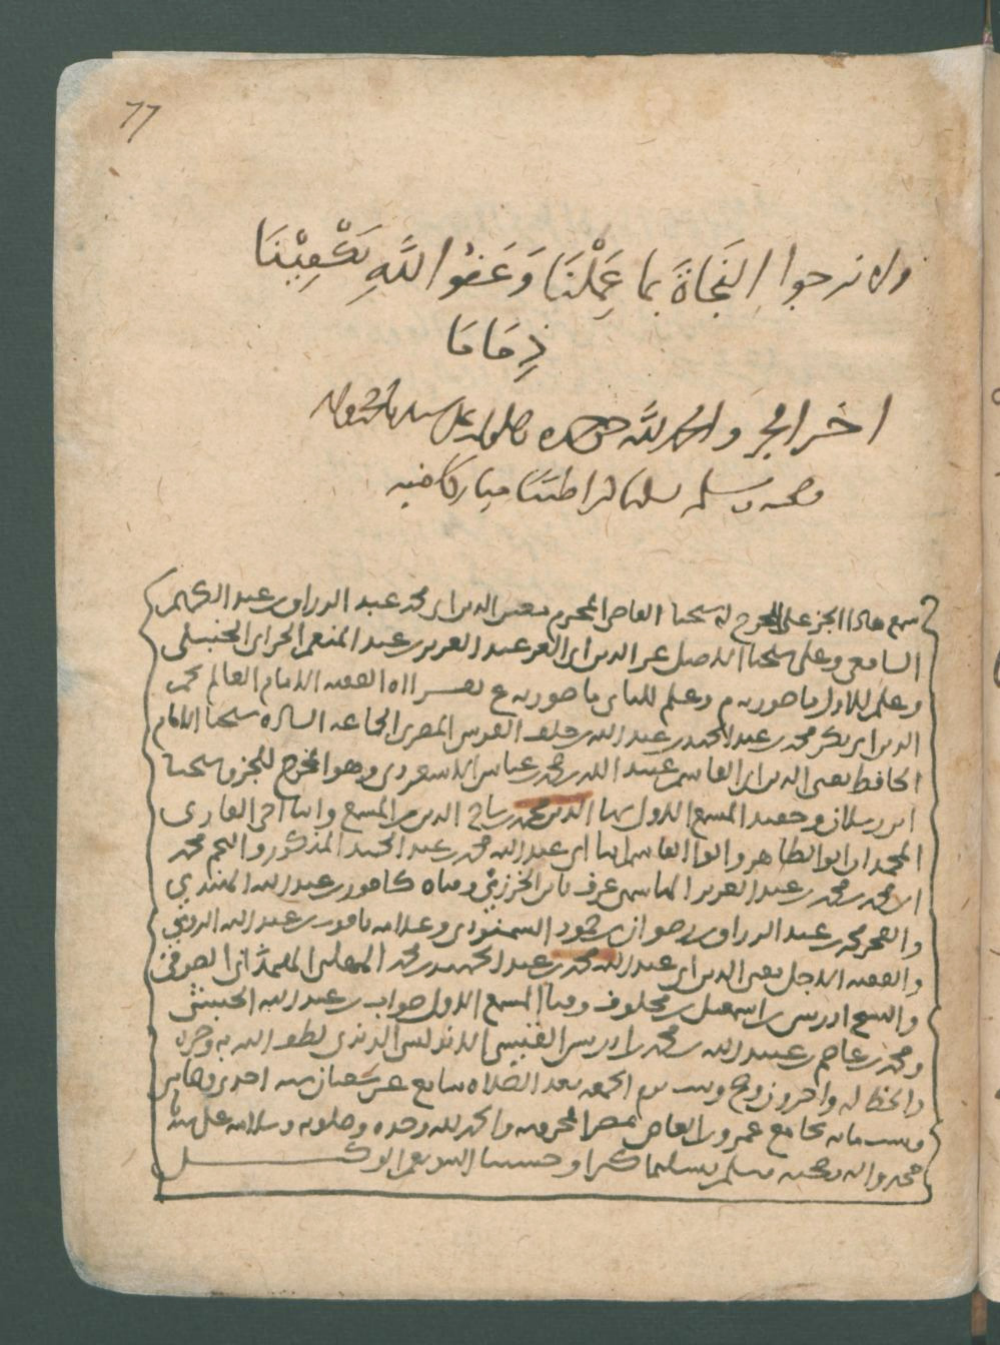 77
ولا نرجوا النَّجَاةَ بما عَمِلْنَا وَعَفْوُ اللَّهِ يَكْفِيْنَا
ذِمَامَا
اخر الجز والحمد لله حق حمده وصلواته على سيدنا محمد واله
وصحبه وسلم تسليما كثيرا طيبا مباركا فيه
سمع هذا الجز على المخرج له شيخنا العاصى المخرم معين الدين ابى محمد عبد الرزاق بن عبد الكريم
السافعى وعلى شيخنا الاصيل عز الدين ابى العز عبد العزيز بن عبد المنعم الحرانى الحنبلى
وعلم للاول ما صورته م وعلم للثانى ما صورته ع الفقيه الامام العالم
الدين ابو بكر محمد بن عبد الحميد بن عبد الله بن خلف القرشى المصرى الجماعه الساده شيخنا الامام
الحافظ تقى الدين ابو القاسم عبيد الله بن محمد بن عباس الاسعردى وهو المخرج للجز وشيخنا
ابن رسلان وحفيد المسمع الاول بها الدين محمد بن تاج الدين بن المسمع وابنا اخى القارى
المحمدان ابو الطاهر وابو القاسم ابنا ابى عبد الله محمد بن عبد الحميد المذكور والنجم محمد
بن محمد بن عبد العزيز عرف بابن الخرزى وفتاه كافور بن عبد الله الهندى
والفخر محمد بن عبد الرزاق بن رضوان بن محمود السمنودى وغلامه ياقوت بن عبد الله الرومى
والفقيه الاجل تقى الدين ابو عبد الله محمد بن عبد الحميد بن محمد المهلبى الصوفى
والشيخ ادريس بن اسمعيل بن مخلوف وفتا المسمع الاول صواب بن عبد الله الحبشى
ومحمد بن عاصم بن عبيد الله بن محمد بن ادريس القيسى الاندلسى الرندى لطف الله به وحرره
والخط له واخرون وصح وثبت يوم الجمعه بعد الصلاه سابع عشر شعبان سنه احدى وثمانين
وستمائه بجامع عمرو بن العاص بمصر المحروسه والحمد لله وحده وصلوته وسلامه على سيدنا
محمد واله وصحبه وسلم تسليما كثيرا وحسبنا الله ونعم الوكيل